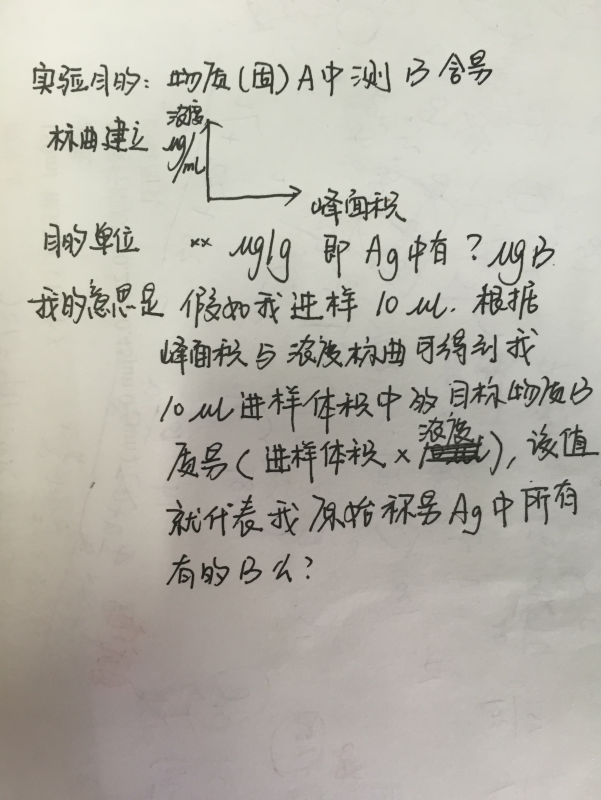 实验目的：物质（固）A中测B含量
标曲建立 浓度 μg/mL
峰面积
目的单位 ×× μg/g 即 Ag中有？μgB
我的意思是 假如我进样 10 μl. 根据
峰面积与浓度标曲可得到我
10 μl 进样体积中的目标物质B
质量（进样体积×浓度），该值
就代表我原始称量Ag中所有
有的B么？